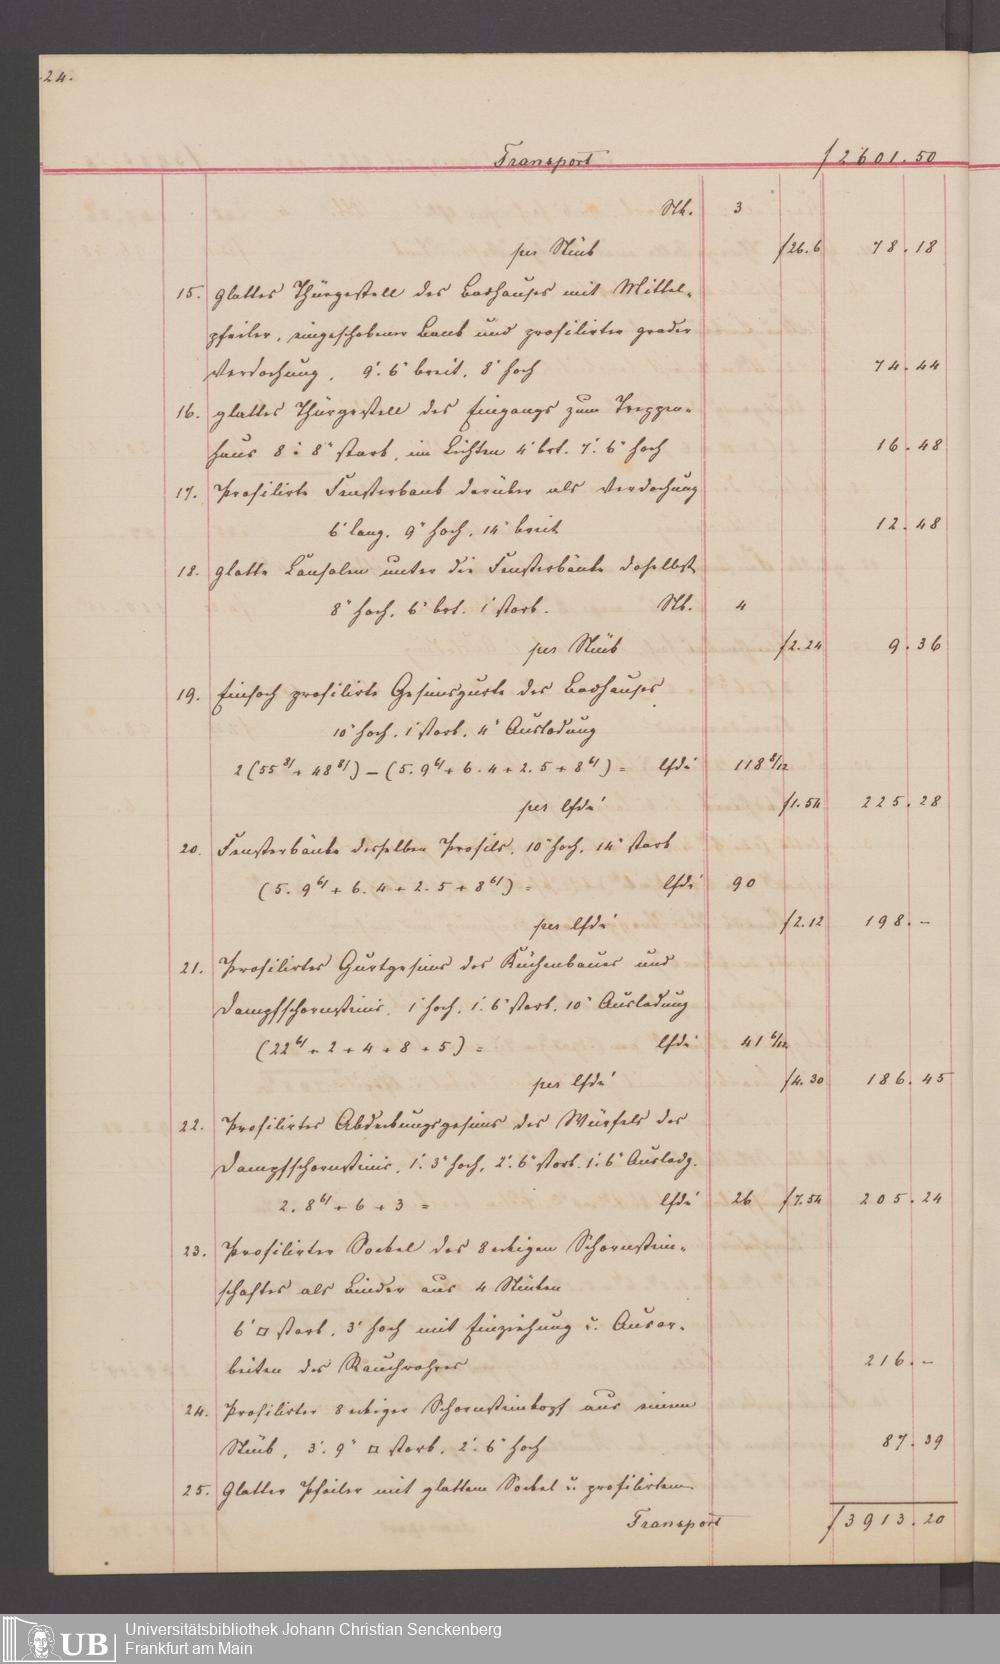 24.
Transport f 2601.50
Stk. 3
per Stück f 26.6 78.18
15. Glattes Thürgestell des Badhauses mit Mittel-
pfeiler, eingeschobener Bank und profilirter grader
Verdachung, 9'.6" breit, 8' hoch 74.44
16. Glattes Thürgestell des Eingangs zum Treppen-
haus 8 : 8" stark, im Lichten 4' brt. 7'.6" hoch 16.48
17. Profilirte Fensterbank darüber als Verdachung
6' lang, 9" hoch, 14" breit 12.48
18. Glatte Consolen unter die Fensterbänke daselbst
8" hoch, 6" brt. 1' stark. Stk. 4
per Stück f 2.24 9.36
19. Einfach profilirte Gesimsgurte des Badhauses
10" hoch, 1' stark, 4" Ausladung
2 (55 8/ + 48 8/) – (5. 9 6/ + 6. 4 + 2. 5 + 8 6/) = lfd' 118 8/12
per lfd' f 1.54 225.28
20. Fensterbänke desselben Profils, 10" hoch, 14" stark
(5. 9 6/ + 6. 4 + 2. 5 + 8 6/) = lfd' 90
per lfd' f 2.12 198.–
21. Profilirtes Gurtgesims des Küchenbaues und
Dampfschornsteins, 1' hoch, 1'.6" stark, 10" Ausladung
(22 6/ + 2 + 4 + 8 + 5) = lfd' 41 6/12
per lfd' f 4.30 186.45
22. Profilirtes Abdeckungsgesims des Würfels des
Dampfschornsteins, 1'.3" hoch, 2'.6" stark. 1'.6" Ausladg.
2. 8 6/ + 6 + 3 = lfd' 26 f 7.54 205.24
23. Profilirter Sockel des 8 eckigen Schornstein-
schaftes als Binder aus 4 Stücken
6' □ stark, 3' hoch mit Einziehung u. Ausar-
beiten des Rauchrohres 216.–
24. Profilirter 8 eckiger Schornsteinkopf aus einem
Stück, 3'.9" □ stark, 2'.6" hoch 87.39
25. Glatter Pfeiler mit glattem Sockel u. profilirtem
Transport f 3913.20
UB
Universitätsbibliothek Johann Christian Senckenberg
Frankfurt am Main